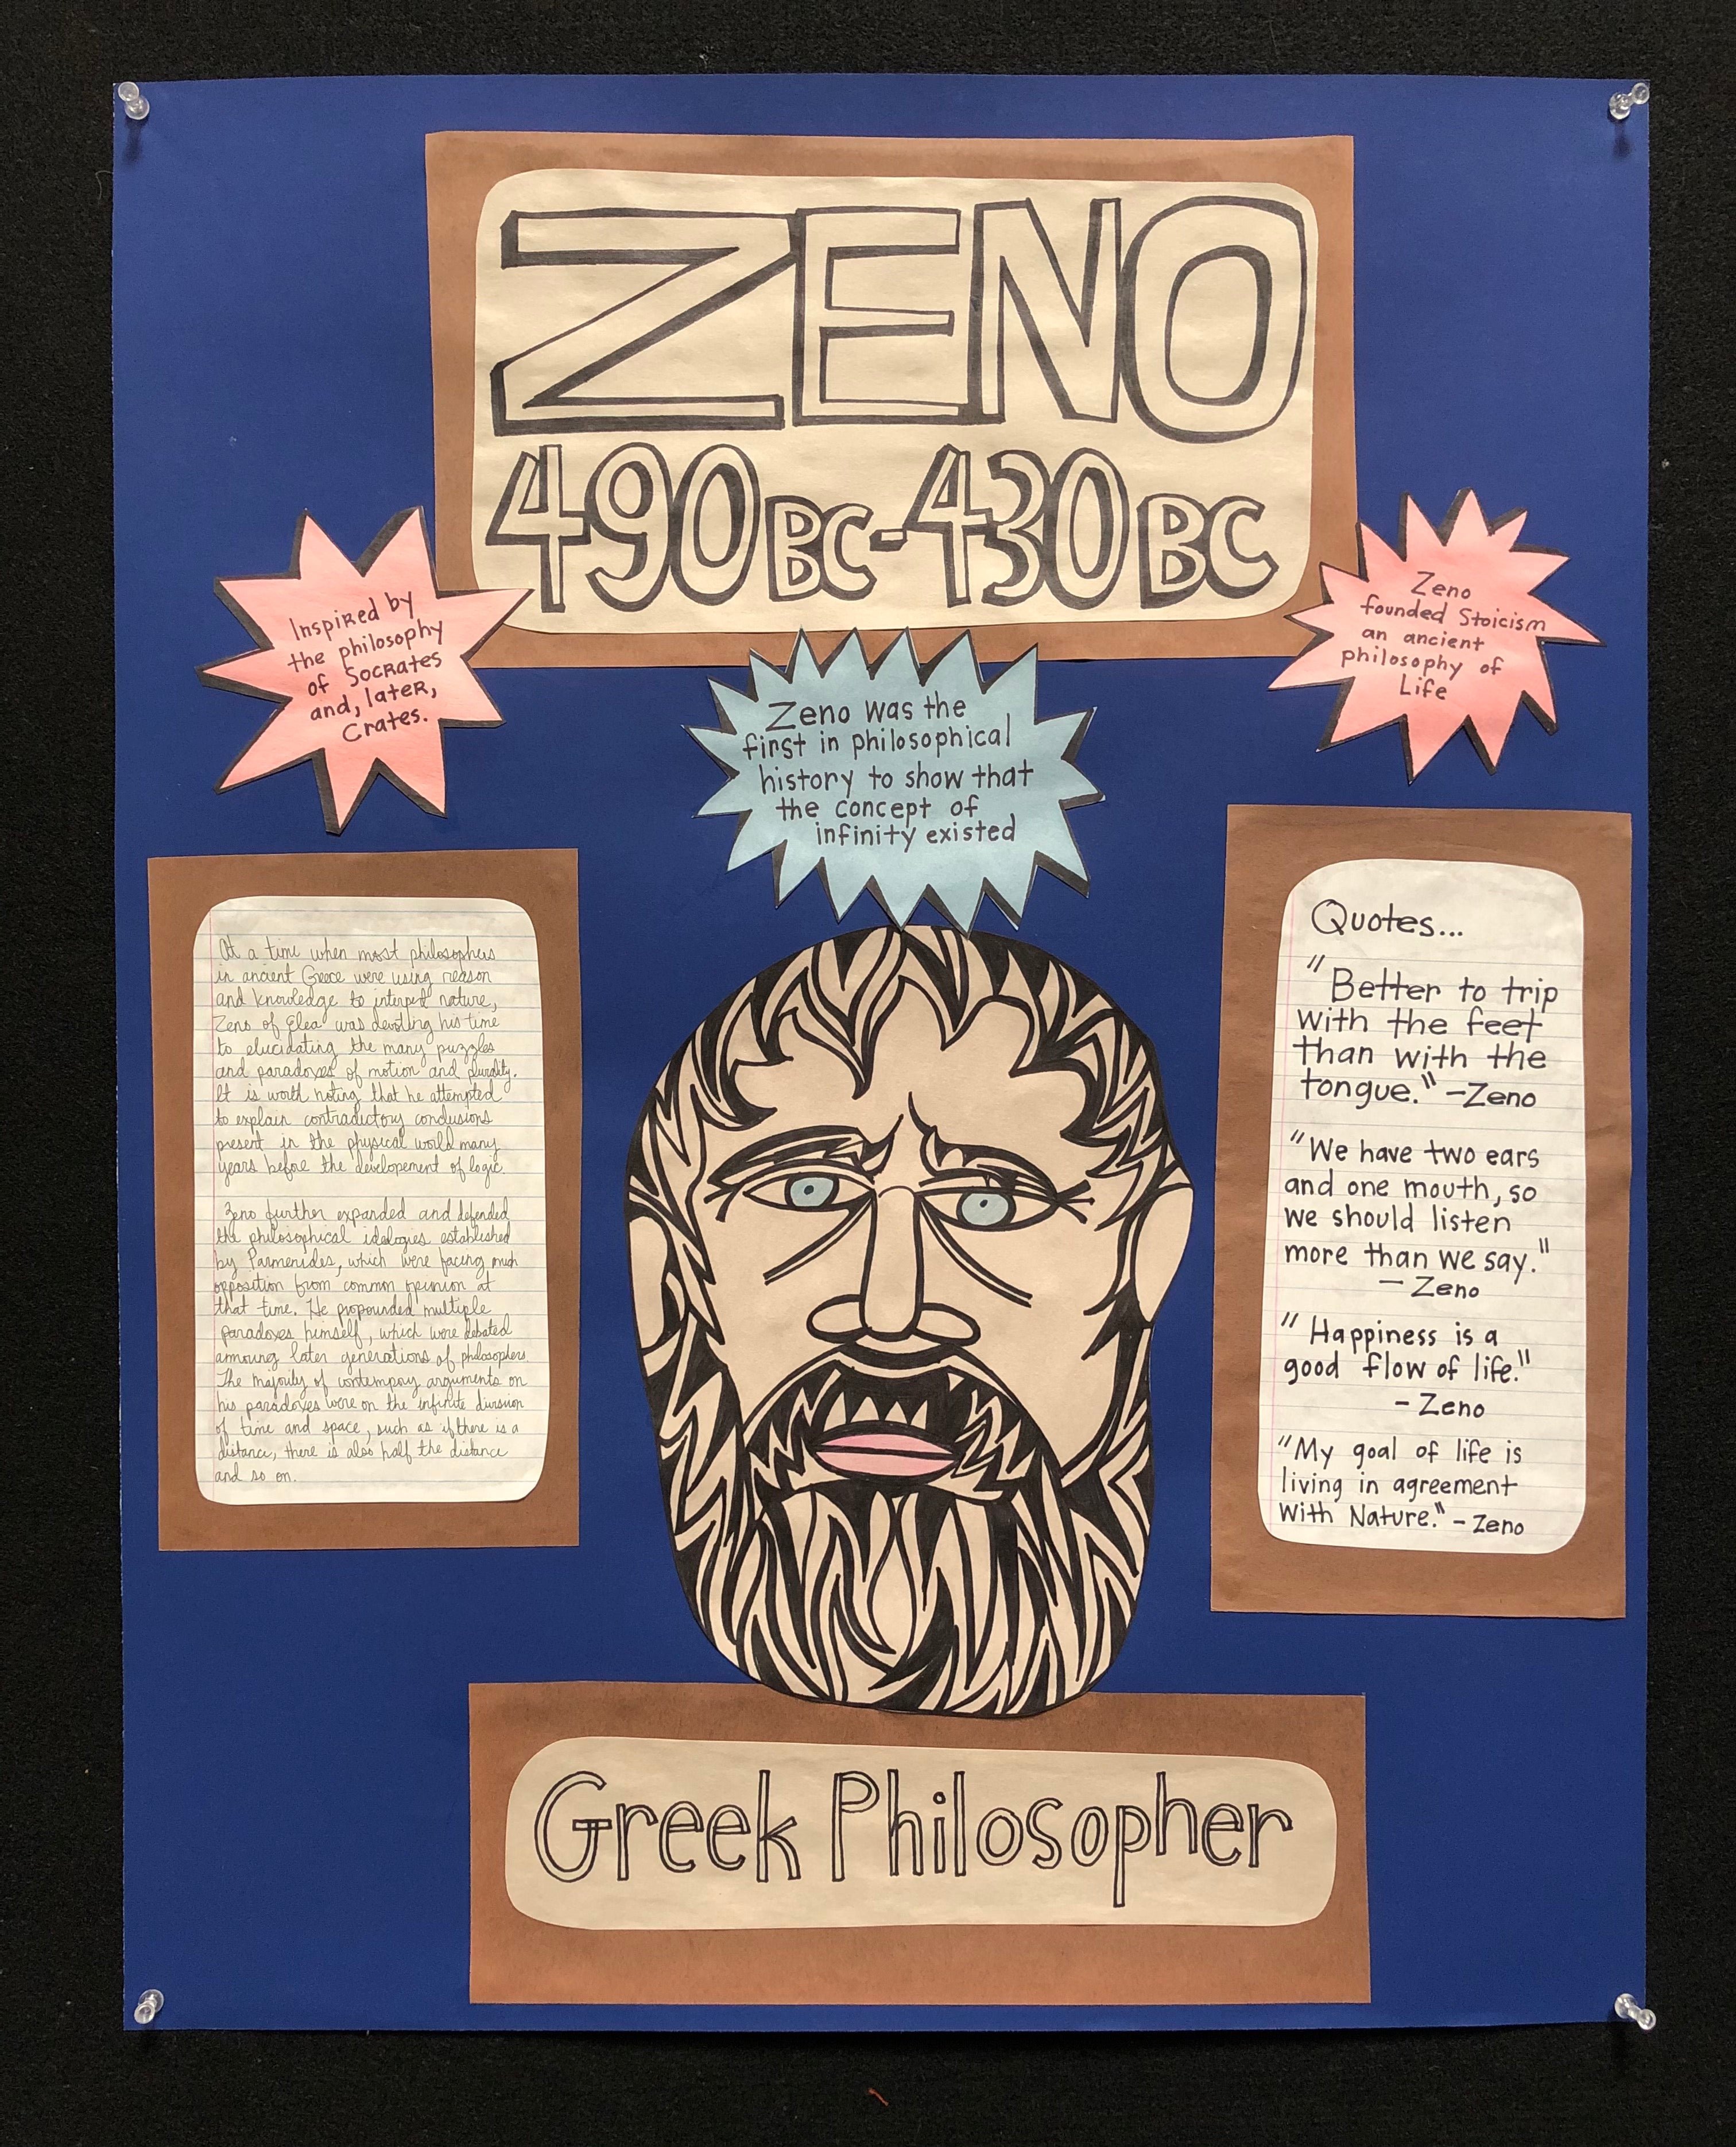 ZENO
490 BC - 430 BC
Inspired by
the philosophy
of Socrates
and, later,
Crates.
Zeno was the
first in philosophical
history to show that
the concept of
infinity existed
Zeno
founded Stoicism
an ancient
philosophy of
Life
At a time when most philosophers
in ancient Greece were using reason
and knowledge to interpret nature,
Zeno of Elea was devoting his time
to elucidating the many puzzles
and paradoxes of motion and plurality.
It is worth noting that he attempted
to explain contradictory conclusions
present in the physical world many
years before the developement of logic.
Zeno further expanded and defended
the philosophical ideologies established
by Parmenides, which were facing much
opposition from common opinion at
that time. He propounded multiple
paradoxes himself, which were debated
amoung later generations of philosophers.
The majority of contempory arguments on
his paradoxes were on the infinite division
of time and space, such as if there is a
distance, there is also half the distance
and so on.
Quotes...
"Better to trip
with the feet
than with the
tongue." - Zeno
"We have two ears
and one mouth, so
we should listen
more than we say."
- Zeno
"Happiness is a
good flow of life."
- Zeno
"My goal of life is
living in agreement
with Nature." - Zeno
Greek Philosopher